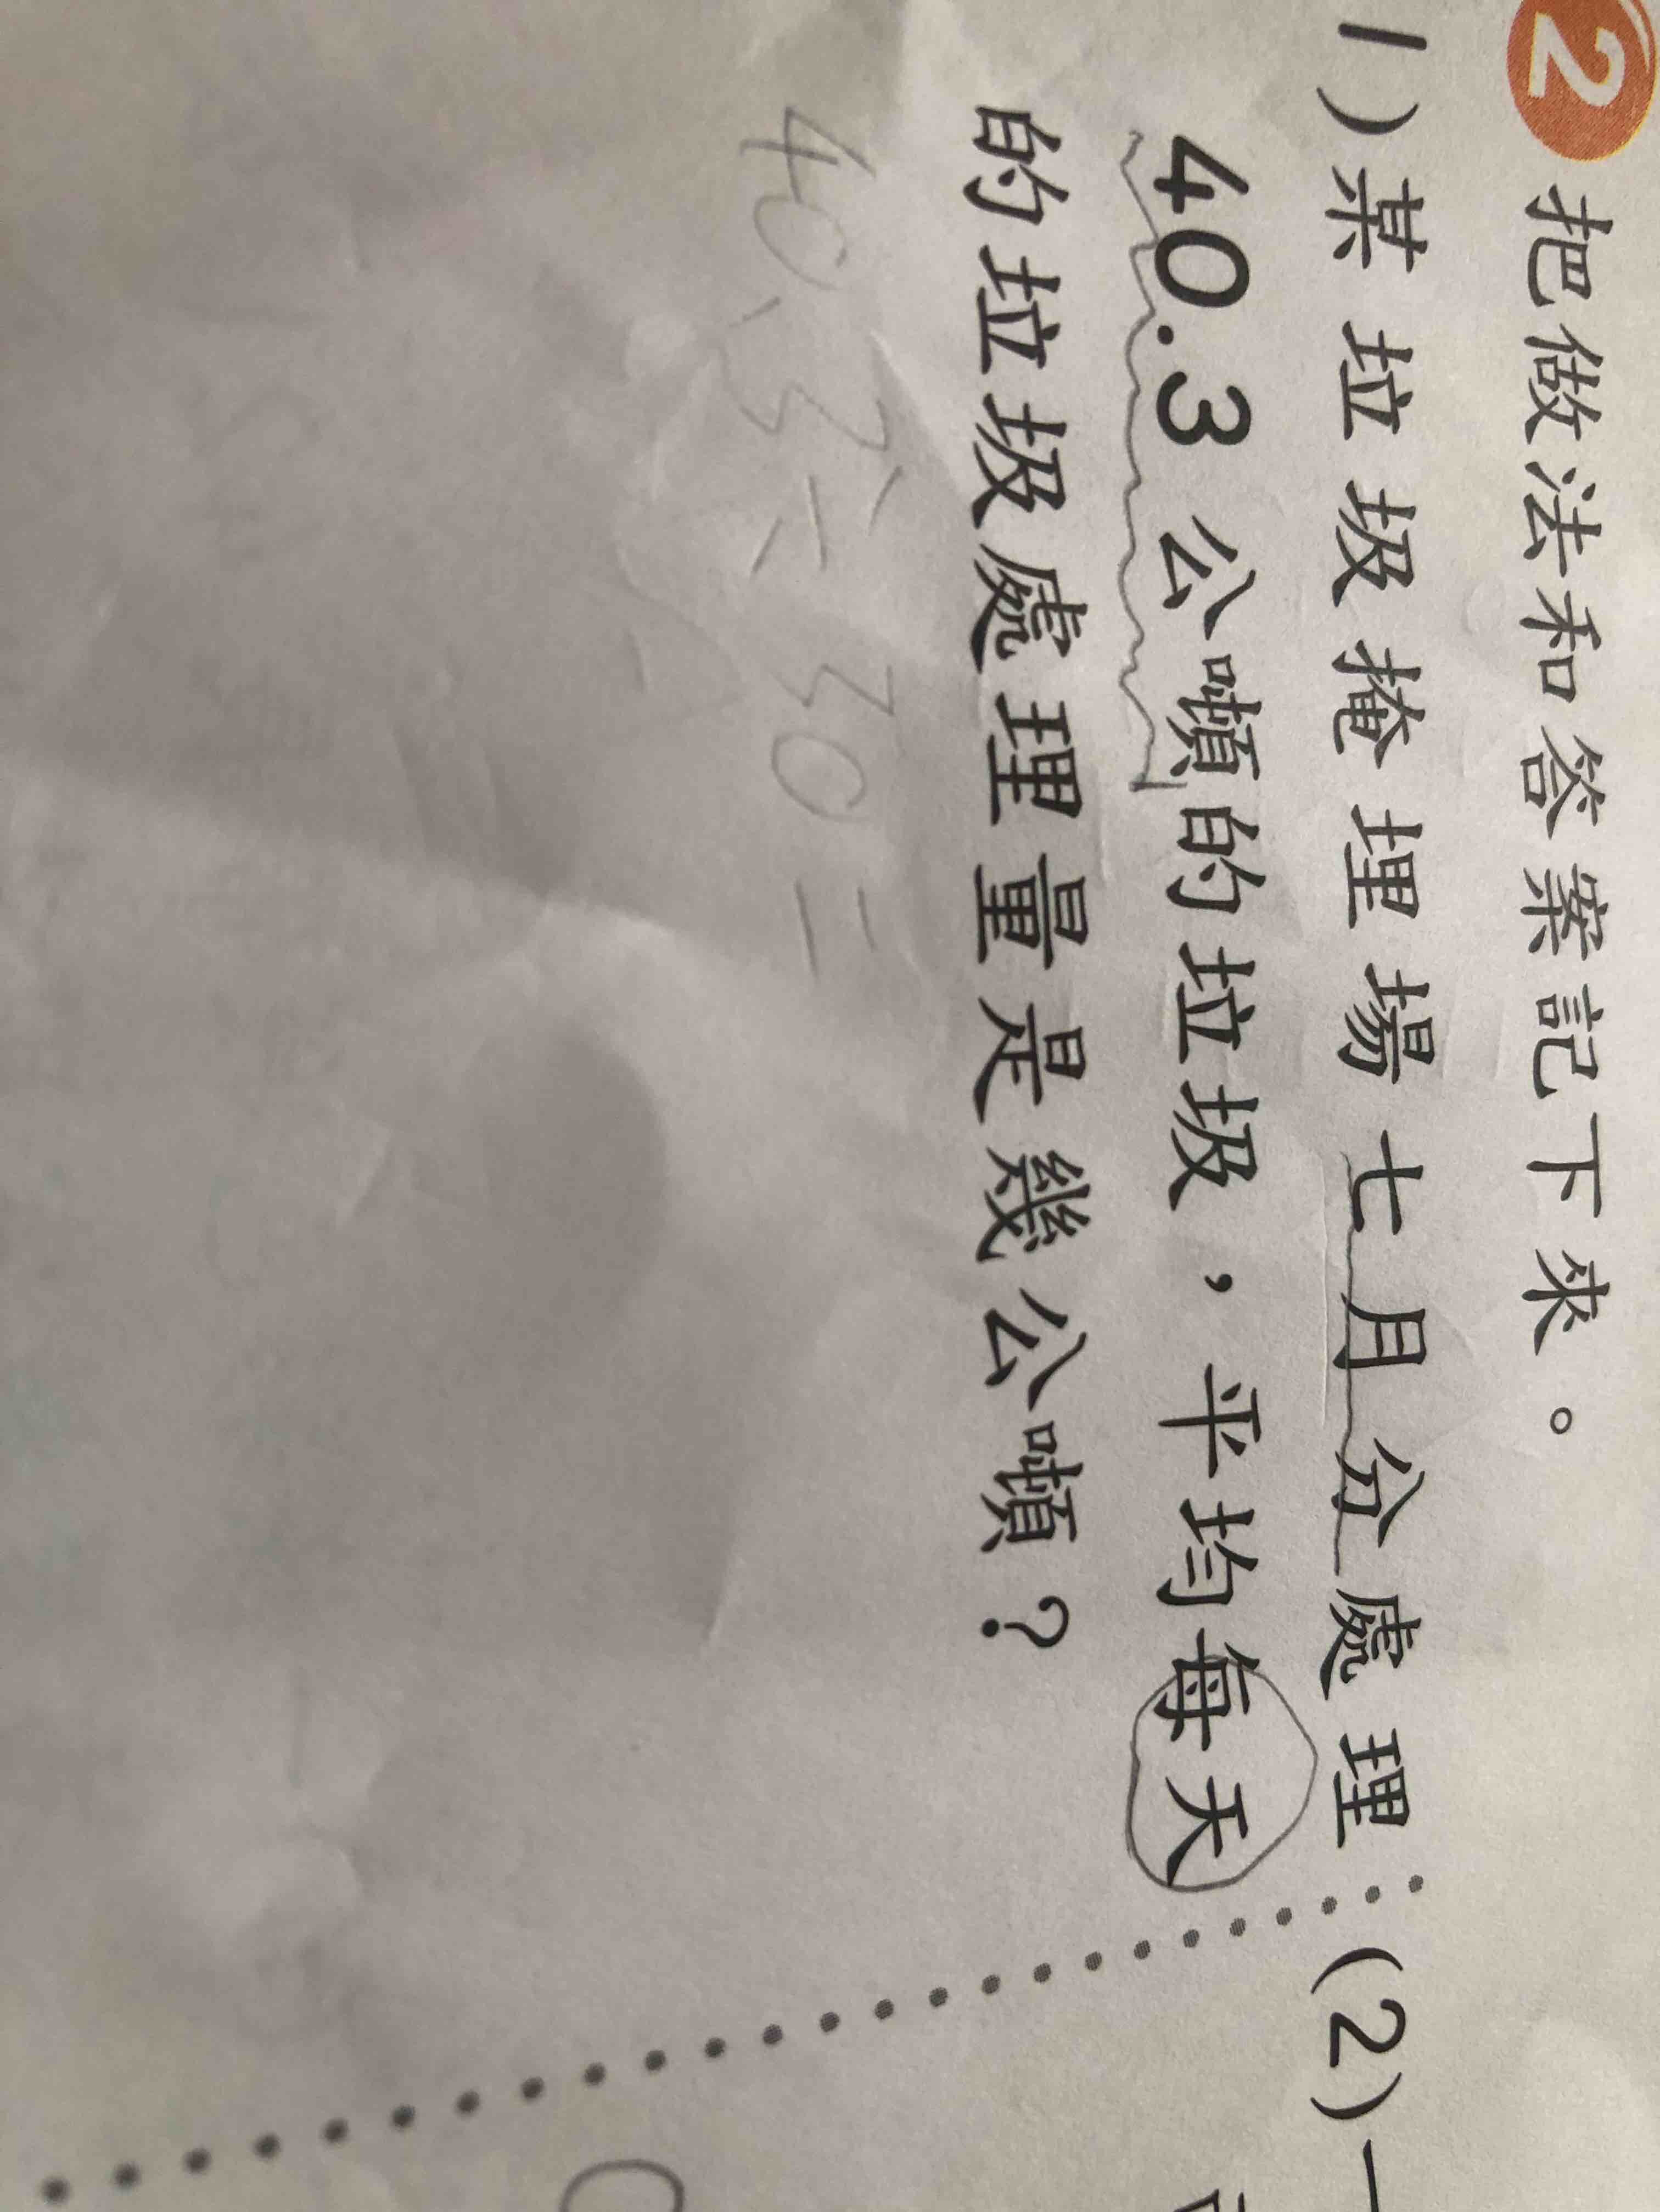 2 把做法和答案記下來。
1)某垃圾掩埋場七月分處理
40.3公噸的垃圾，平均每天
的垃圾處理量是幾公噸？
40.3÷30=
(2)一